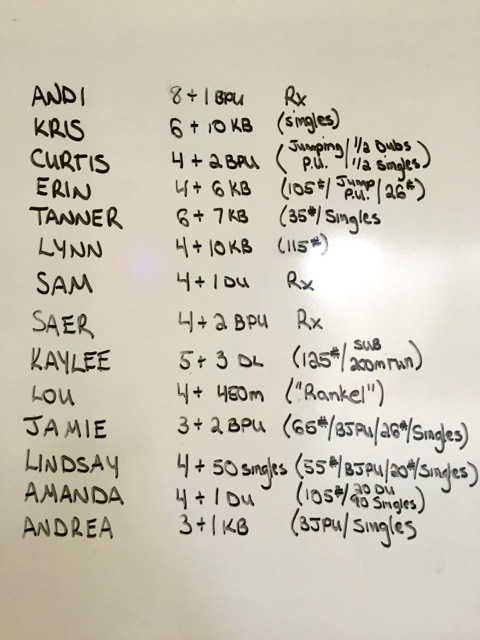 ANDI 8 + 1 BPU Rx
KRIS 6 + 10 KB (singles)
CURTIS 4 + 2 BPU (Jumping P.U. / 1/2 Dubs 1/2 Singles)
ERIN 4 + 6 KB (105# / Jump P.U. / 26#)
TANNER 6 + 7 KB (35# / Singles
LYNN 4 + 10 KB (115#)
SAM 4 + 1 DU Rx
SAER 4 + 2 BPU Rx
KAYLEE 5 + 3 DL (125# / SUB 200m run)
LOU 4 + 450m ("Rankel")
JAMIE 3 + 2 BPU (65# / BJPU / 26# / Singles)
LINDSAY 4 + 50 singles (55# / BJPU / 20# / Singles)
AMANDA 4 + 1 DU (105# / 20 DU 90 Singles)
ANDREA 3 + 1 KB (BJPU / Singles